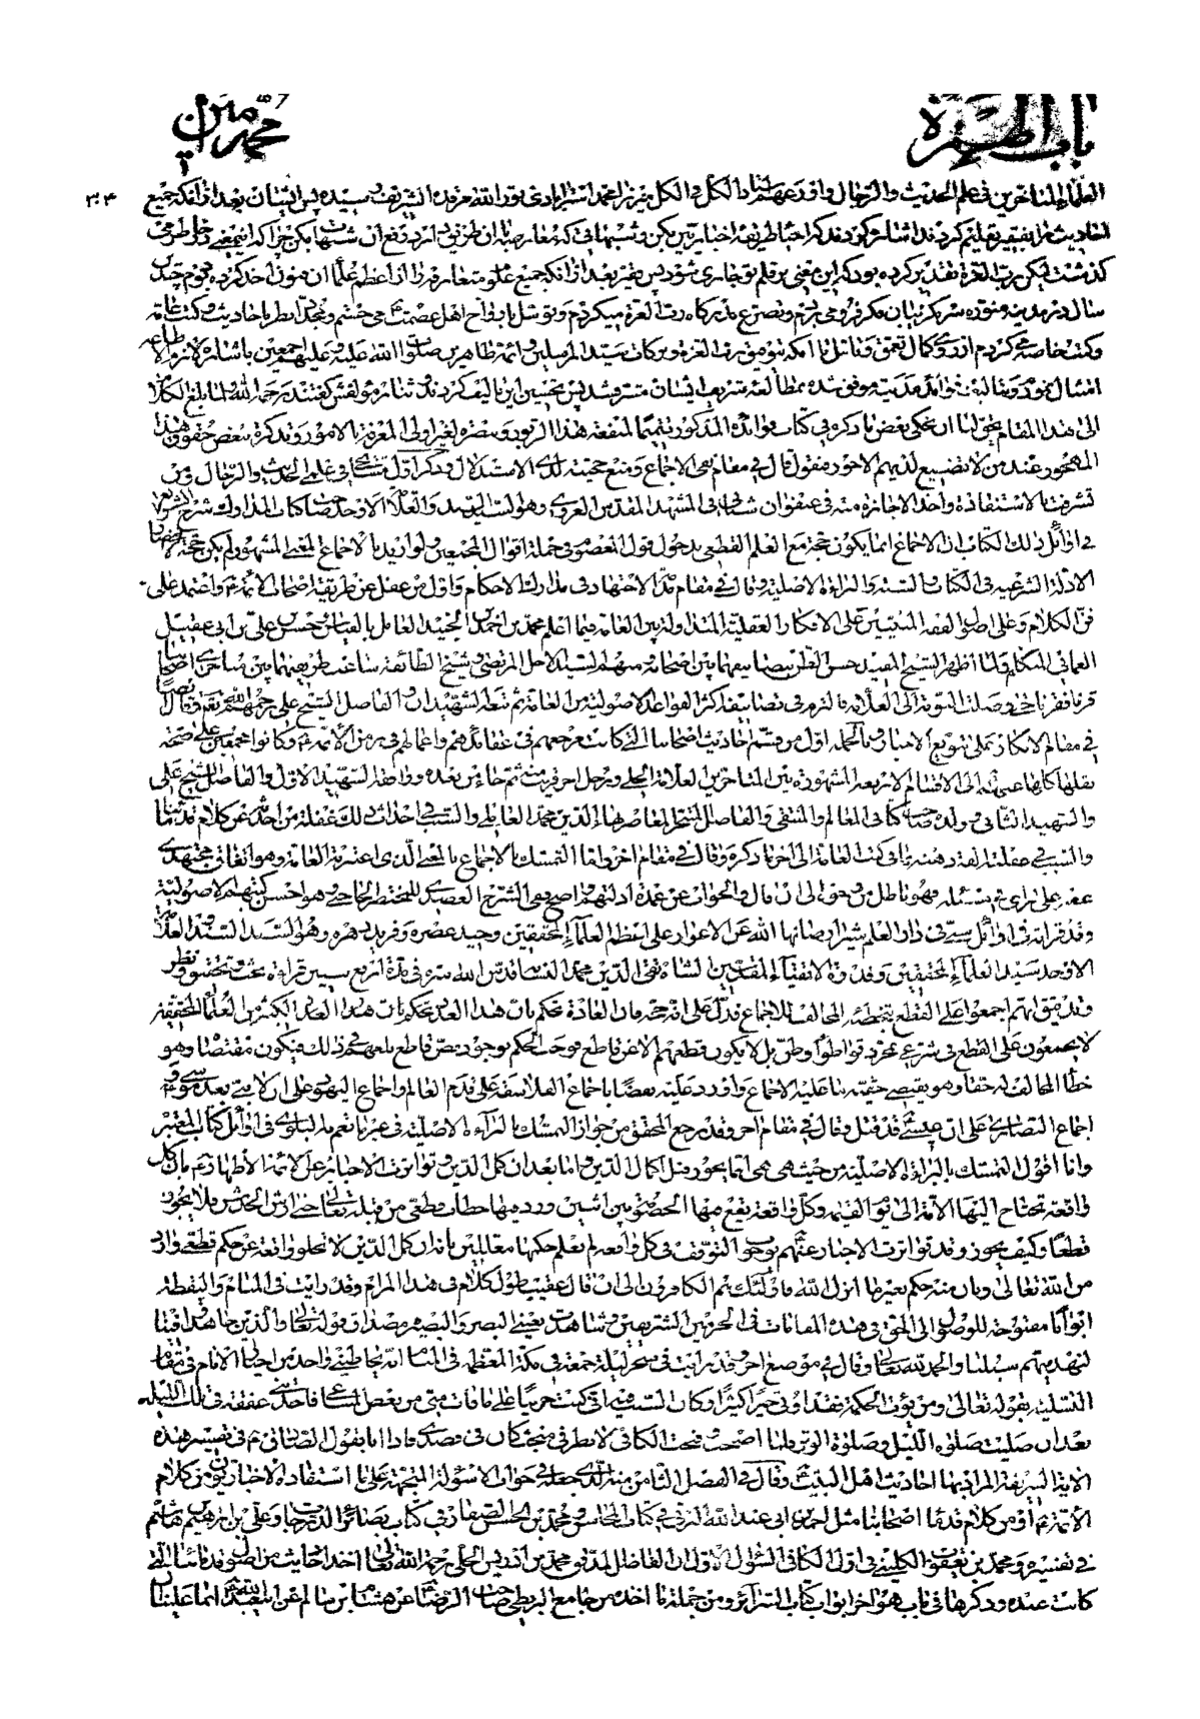 باب الصفرة
محمد امین
۳۰۴
العلماء المتاخرین فی علم الحدیث والرجال و اورعهم استاد الکل فی الکل میرزا محمد استرابادی نور الله مرقده الشریف رسیده پس ایشان بعد از آنکه جمیع
احادیث را بفقیر تعلیم کردند اشاره کردند که احیا طریقه اخباریین بکن و شبهاتی که معارضه با آن طریق دارد رفع آن شبهات بکن چرا که این معنی در خاطر می
گذشت لیکن رب العزة تقدیر کرده بود که این معنی بر قلم تو جاری شود پس فقیر بعد از آنکه جمیع علوم متعارفه را از اعظم علماء آن فنون اخذ کرده بودم چندین
سال در مدینه منوره سر بگریبان فکر فرو می بردم و تضرع بدرگاه رب العزة میکردم و توسل بارواح اهل عصمت ع می جستم و مجددا نظر باحادیث و کتب عامه
و کتب خاصه می کردم از روی کمال تعمق و تامل تا آنکه بتوفیق رب العزة و برکات سید المرسلین و ائمه طاهرین صلوات الله علیه و علیهم اجمعین باشاره لازم الاطاعه
امتثال نمودم و بتالیف فوائد مدنیه موفق شده بمطالعه شریف ایشان مشرف شد پس تحسین این تالیف کردند و ثنا بر مولفش گفتند رحمه الله انتهی
الی هذا المقام یحق لنا ان نحکی بعض ما ذکره فی کتاب فوائده المذکور تتمیما لمنفعة هذا الزبور وتبصرة لغیر اولی المعرفة بالامور وتذکرة لبعض حقوق هذا
المهجور عند من لا تضییع لدیهم الاجور فنقول قال فی مقام نفی الاجماع و منع حجیته لدی الاستدلال و ذکر اول مشایخی فی علمی الحدیث والرجال و من
تشرفت بالاستفادة و اخذ الاجازة منه فی عنفوان شبابی فی المشهد المقدس الغروی وهو السید السند والعلامة الاوحد صاحب کتاب المدارک شرح الشرایع
فی اوائل ذلک الکتاب ان الاجماع انما یکون حجة مع العلم القطعی بدخول قول المعصوم فی جملة اقوال المجمعین ولو ارید بالاجماع المعنی المشهور لم یکن حجة لانحصار
الادلة الشرعیه فی الکتاب والسنة والبراءة الاصلیة وقال فی مقام ذم الاجتهاد فی مدارک الاحکام و اول من غفل عن طریقة اصحاب الائمة ع واعتمد علی
فن الکلام وعلی اصول الفقه المبنیین علی الافکار العقلیة المتداولة بین العامة فیما اعلم محمد بن احمد بن الجنید العامل بالقیاس وحسن بن علی بن ابی عقیل
العمانی المتکلم ولما اظهر الشیخ المفید حسن الظن بتصانیفهما بین اصحابه ومنهم السید الاجل المرتضی و شیخ الطائفة شاعت طریقتهما بین متاخری اصحابنا
قرنا فقرنا حتی وصلت النوبة الی العلامة فالتزم فی تصانیفه اکثر القواعد الاصولیة من العامة ثم تبعه الشهیدان والفاضل الشیخ علی رحمهم الله تعالی وقال ایضا
فی مقام الانکار علی تنویع الاخبار وبالجملة اول من قسم احادیث اصحابنا التی کانت مرجعهم فی عقائدهم واعمالهم فی زمن الائمة ع وکانوا مجمعین علی صحة
نقلها کلها عنهم الی الاقسام الاربعة المشهورة بین المتاخرین العلامة الحلی ورجل آخر قریب منه ثم جاء من بعده و وافقه الشهید الاول والفاضل الشیخ علی
والشهید الثانی وولده صاحب کتابی المعالم والمنتقی والفاضل المتبحر المعاصر بهاء الدین محمد العاملی والسبب فی احداث ذلک غفلة من احدثه عن کلام قدمائنا
والسبب فی غفلته الفة ذهنه بما فی کتب العامة الی آخر ما ذکره وقال فی مقام آخر واما التمسک بالاجماع بالمعنی الذی اعتبرته العامة وهو اتفاق مجتهدی
عصر علی رای فی مسئلة فهو باطل من وجوه الی ان قال والجواب عن عمدة ادلتهم واضح ففی الشرح العضدی للمختصر الحاجبی وهو احسن کتبهم الاصولیة
وقد قراته فی اوائل سنی فی دار العلم شیراز صانها الله عن الاعوار علی اعظم العلماء المحققین وحید عصره وفرید دهره وهو السید السند العلامة
الاوحد سید العلماء المحققین وقدوة الاتقیاء المقدسین الشاه تقی الدین محمد النسابة قدس الله سره فی مدة اربع سنین قراءة بحث وتحقیق ونظر
وتدقیق انهم اجمعوا علی القطع بتخطئة المخالف للاجماع فدل علی انه حجة فان العادة تحکم بان هذا العدد تحکم بان هذا العدد الکثیر من العلماء المحققین
لا یجمعون علی القطع فی شرعی بمجرد تواطؤ او ظن بل لا یکون قطعهم الا عن قاطع فوجب الحکم بوجود نص قاطع بلغهم فی ذلک فیکون مقتضاه وهو
خطأ المخالف له حقا وهو یقتضی حقیة ما علیه الاجماع و اورد علیه نقضا باجماع الفلاسفة علی قدم العالم واجماع الیهود علی ان لا نبی بعد موسی و
اجماع النصاری علی ان عیسی قد قتل وقال فی مقام آخر وقد رجع المحقق من جواز التمسک بالبراءة الاصلیة فی غیر ما تعم به البلوی فی اوائل کتاب المعتبر
وانا اقول التمسک بالبراءة الاصلیة من حیث هی هی انما یجوز قبل اکمال الدین واما بعد ان کمل الدین وتواترت الاخبار عن الائمة الاطهار ع بان کل
واقعة تحتاج الیها الامة الی یوم القیمة وکل واقعة یقع فیها الخصومة بین اثنین ورد فیها خطاب قطعی من قبله تعالی حتی ارش الخدش فلا یجوز
قطعا وکیف یجوز وقد تواترت الاخبار عنهم بوجوب التوقف فی کل واقعة لم نعلم حکمها معللین بانه بعد ان کمل الدین لا تخلو واقعة عن حکم قطعی وارد
من الله تعالی وبان من حکم بغیر ما انزل الله فاولئک هم الکافرون الی ان قال عقیب طول کلام فی هذا المرام وقد رایت فی المنام والیقظة
ابوابا مفتوحة للوصول الی الحق فی هذه المقامات فی الحرمین الشریفین وشاهدت بعینی البصر والبصیرة مصداق قوله تعالی والذین جاهدوا فینا
لنهدینهم سبلنا والحمد لله تعالی وقال فی موضع آخر وقد رایت فی سحر لیلة جمعة فی مکة المعظمة فی المنام انه یخاطبنی واحد من احبائی الانام فی مقام
التسلیة بقوله تعالی ومن یؤت الحکمة فقد اوتی خیرا کثیرا وکان السبب فیه انی کنت حزینا علی ما فات منی من بعض المساعی فاخذتنی غفقة فی تلک اللیلة
بعد ان صلیت صلوة اللیل وصلوة الوتر فلما اصبحت فتحت الکافی لانظر فی مبحث کان فی قصدی فاذا انا بقول الصادق ع فی تفسیر هذه
الآیة الشریفة المراد بها احادیث اهل البیت وقال فی الفصل الثامن منه الذی جعله فی جواب الاسولة المتجهة علی ما استفاده الاخباریون من کلام
الائمة ع او من کلام قدماء اصحابنا مثل احمد بن ابی عبد الله البرقی فی کتاب المحاسن ومحمد بن الحسن الصفار فی کتاب بصائر الدرجات وعلی بن ابراهیم بن هاشم
فی تفسیره ومحمد بن یعقوب الکلینی فی اول الکافی السؤال الاول ان الفاضل المدقق محمد بن ادریس الحلی رحمه الله تعالی اخذ احادیث من اصول قدمائنا التی
کانت عنده وذکرها فی باب هو آخر ابواب کتاب السرائر ومن جملة ما اخذه من جامع البزنطی صاحب الرضا ع عن هشام بن سالم عن ابی عبد الله ع انما علینا ان